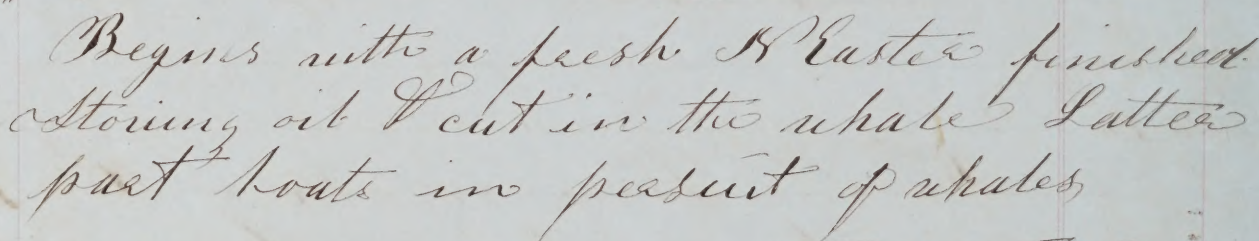 Begins with a fresh N Easter finished
Stowing oil & cut in the whale Latter
part boats in persuit of whales